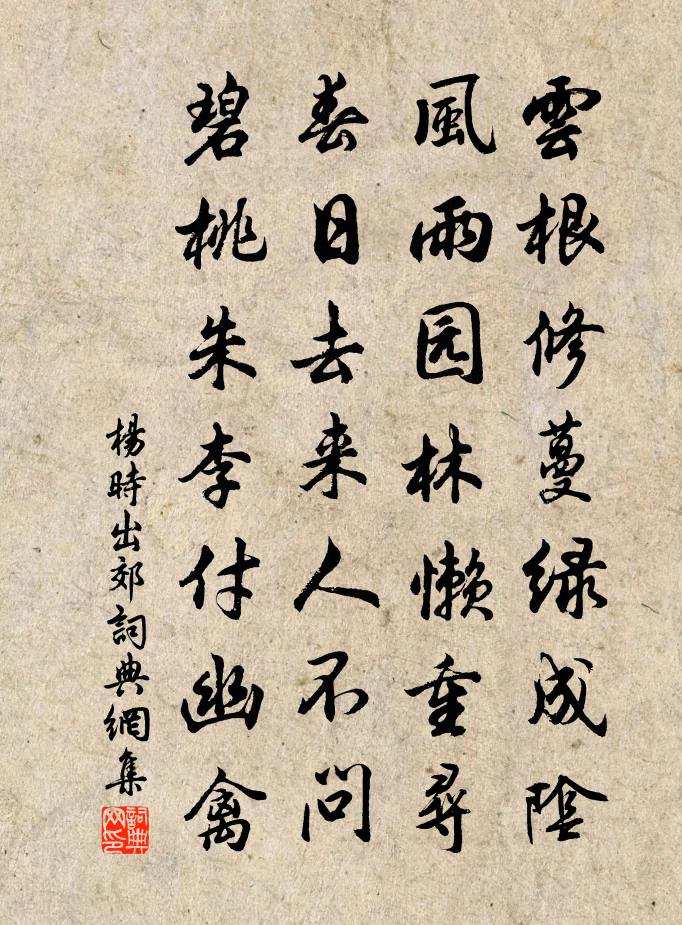 雲根修蔓緑成陰
風雨园林懶重尋
春日去来人不問
碧桃朱李付幽禽
楊時出郊詞典網集
詞典
网印